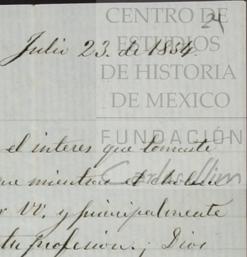 CENTRO DE
ESTUDIOS
DE HISTORIA
DE MEXICO
FUNDACIÓN
Carlos Slim
21
Julio 23. de 1854
el interes que tomaste
que mientras el cholera
r VV. y principalmente
tu profesion.; Dios